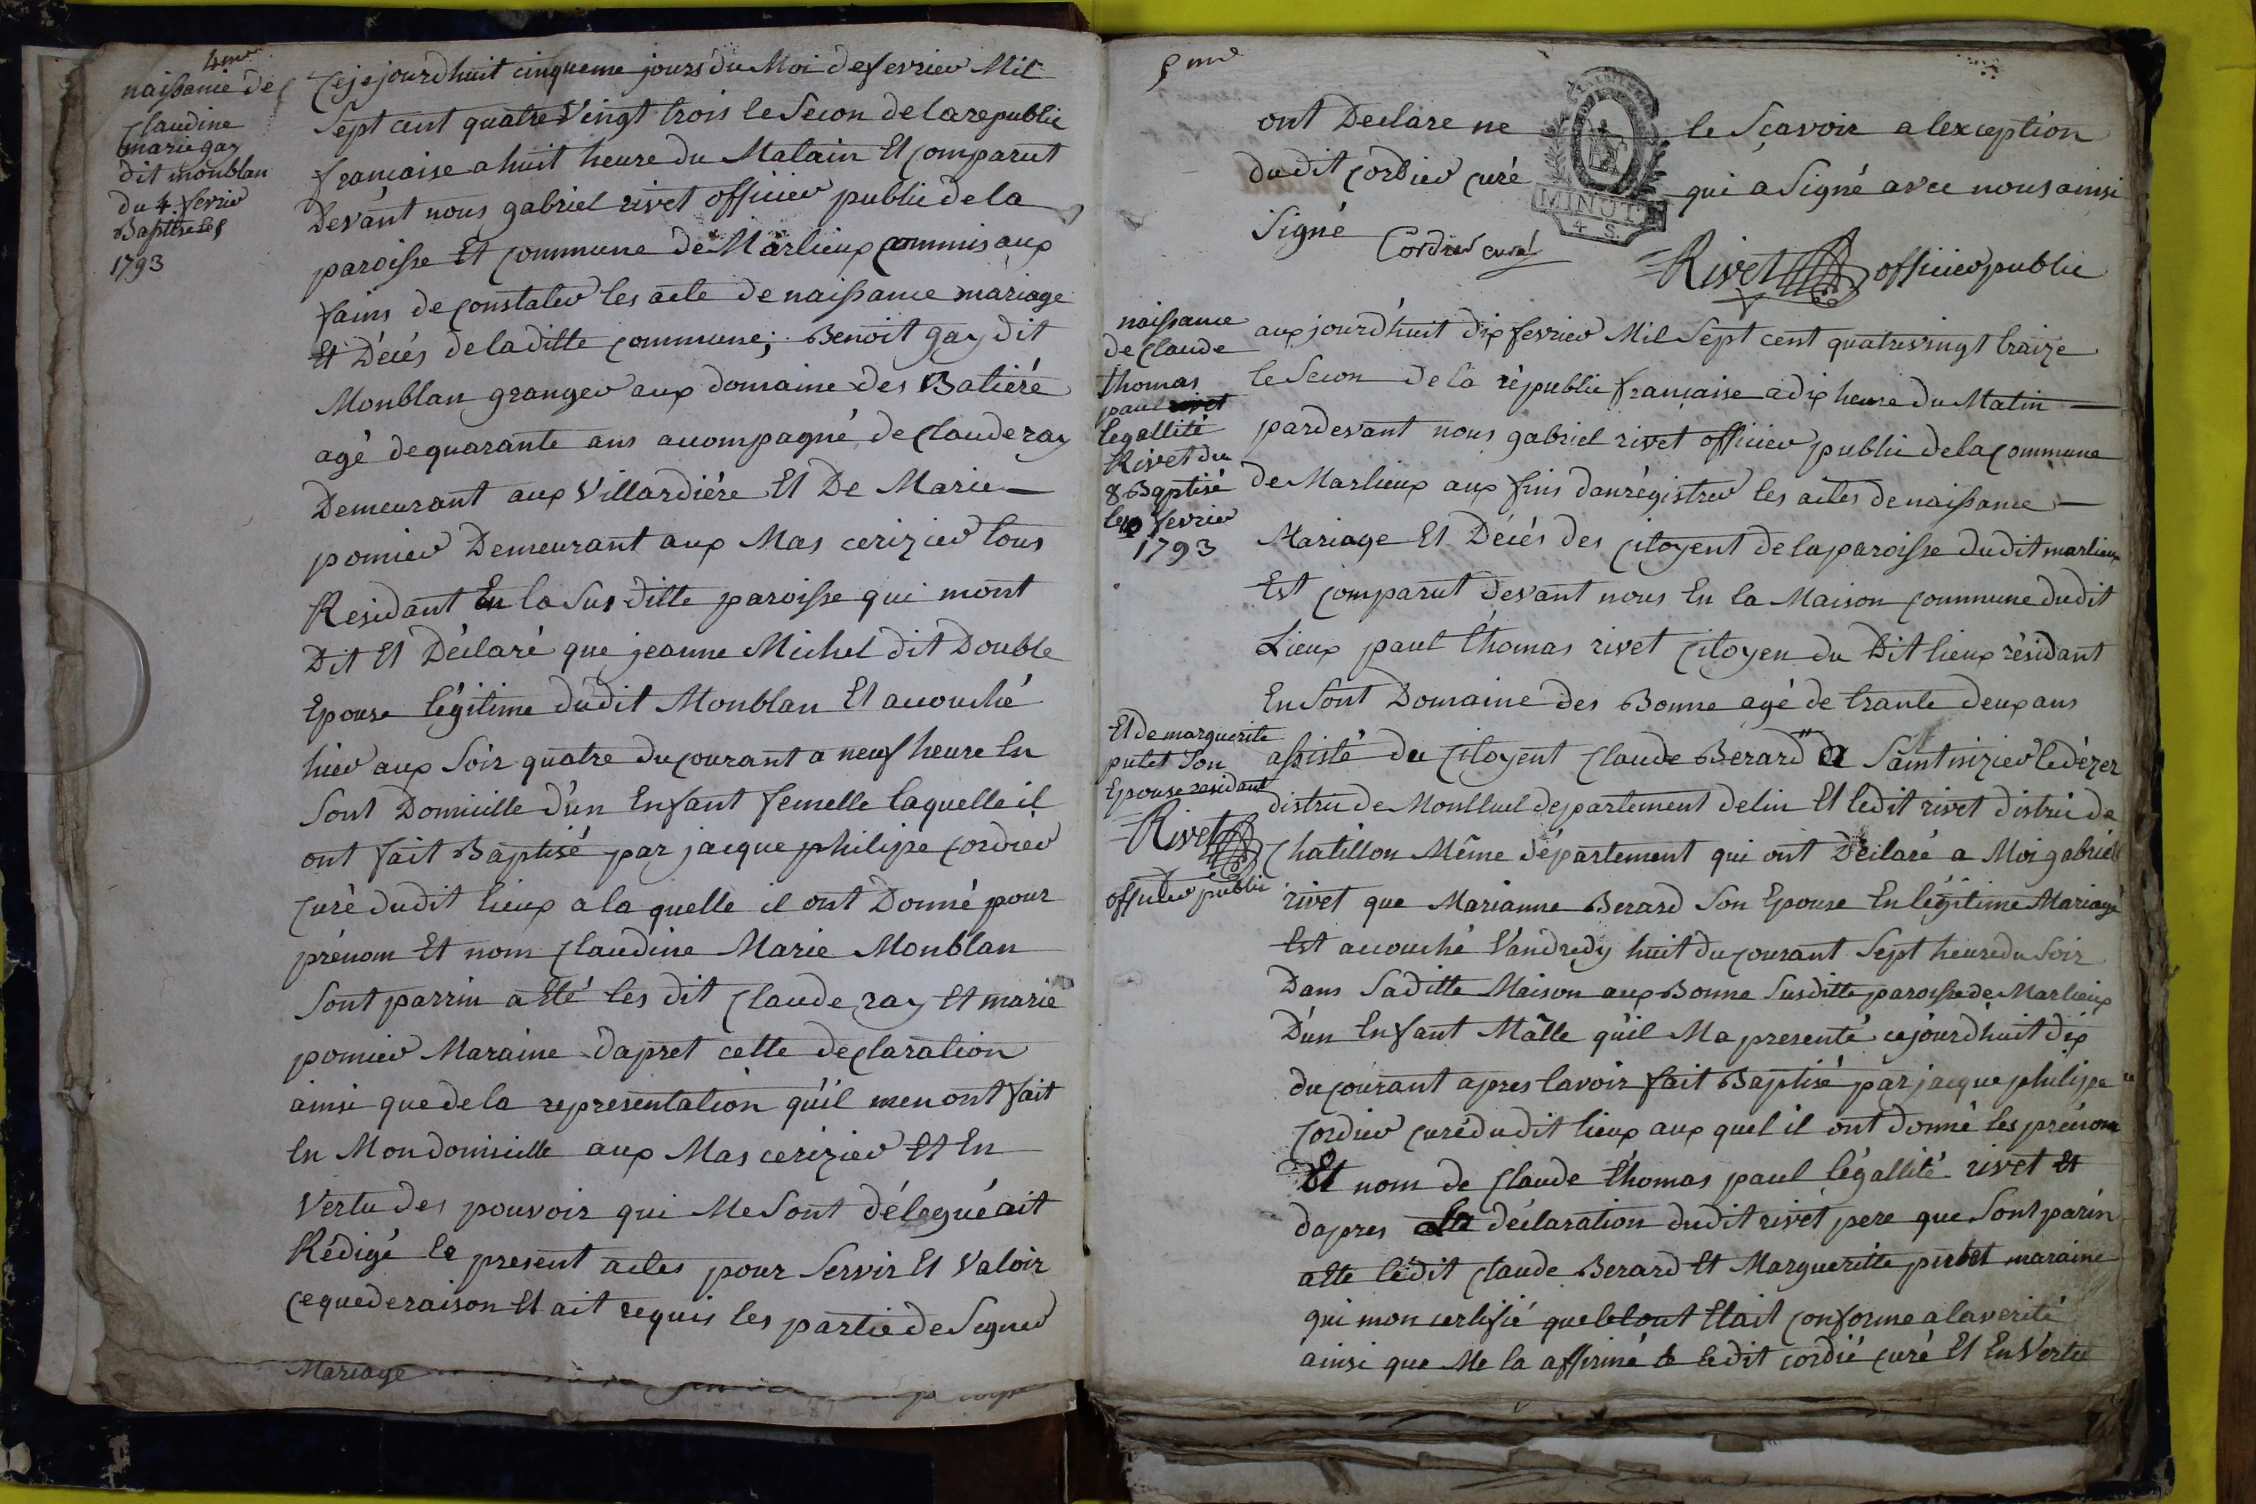 4me
naissance de
Claudine
marie gay
dit monblan
du 4. fevrier
Baptisé le 5
1793
Cejsjourdhuit cinqueme jours du Moi de fevrier Mil
Sept cent quatre Vingt trois le Secon de la republic
francaise a huit heure du Matain Et comparut
Devant nous gabriel rivet officier public de la
paroisse Et commune de Marlieux commis aux
fains de constater les acte de naissance mariage
Et Décés de laditte commune; Benoit gay dit
Monblan granger aux domaine des Batiéré
agé de quarante ans accompagné de Claude ray
Demeurant aux Villardiére Et De Marie
pomier Demeurant aux Mas cerizier tous
Residant En la Sus ditte paroisse qui mont
Dit Et Déclaré que jeanne Michel dit Double
Epouse légitime dudit Monblan Et accouché
hier aux Soir quatre du courant a neuf heure En
Sont Domicille d'un Enfant femelle laquelle il
ont fait Baptisé par jacque philipe Cordier
Curé dudit lieux a la quelle il ont Donné pour
prénom Et nom Claudine Marie Monblan
Sont parrin a Eté les dit Claude ray Et marie
pomier Maraine dapret cette declaration
ainsi que de la representation qu'il men ont fait
En Mon domicille aux Mas cerizier Et En
Vertu des pouvoir qui Me Sont délegué ait
Rédigé le present actes pour Servir Et Valoir
Ce que de raison Et ait requis les partie de Signer
Mariage
5me
ont Declare ne le Sçavoir a lexception
dudit Cordier curé qui a Signé avec nous ainsi
Signé Cordier curé
MINUT.
4 S.
Rivet officier public
naissance
de Claude
thomas
paul rivet
legallité
Rivet du
8 Baptisé
le 10 fevrier
1793
aux jourd'huit dix fevrier Mil Sept cent quatrevingt traize
le Secon de la république francaise a dix heure du Matin
pardevant nous gabriel rivet officier public de la Commune
de Marlieux aux fins danrégistrer les actes de naissance
Mariage Et Décés des Citoyent de la paroisse dudit marlieux
Est Comparut devant nous En la Maison Commune dudit
Lieux paul thomas rivet Citoyen du Dit lieux résidant
En Sont Domaine des Bonne agé de trante deux ans
Et de marguerite
putet Son
Epouse residant
Rivet
officier public
assisté du Citoyent Claude Berard da Saint nizier le dézer
distric de Montluel departement de lin Et ledit rivet distric de
Chatillon Même département qui ont Déclaré a Moi gabriel
rivet que Marianne Berard Son Epouse En légitime Mariage
Est accouché Vandredy huit du courant Sept heure du Soir
Dans Saditte Maison aux Bonne Susditte paroisse de Marlieux
D'un Enfant Mâlle qu'il Ma presenté cejourd'huit dix
du courant apres lavoir fait Baptisé par jacque philipe
Cordier curé dudit lieux aux quel il ont donné les prénom
Et nom de Claude thomas paul légallité rivet Et
dapres la déclaration dudit rivet pere que Sont parin
a Eté ledit Claude Berard Et Margueritte putet maraine
qui mon certifié que le tout Etait Conforme a la verité
ainsi que Me la affirmé le ledit cordié curé Et En Vertu